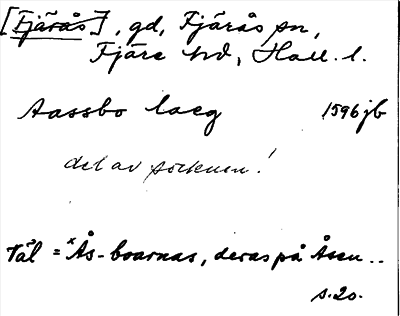 [Fjärås], gd, Fjärås sn,
Fjäre hd, Hall. l.
Aassbo laeg 1596 jb
del av socknen!
Täl = *Ås-boarnas, deras på Åsen..
s. 20.